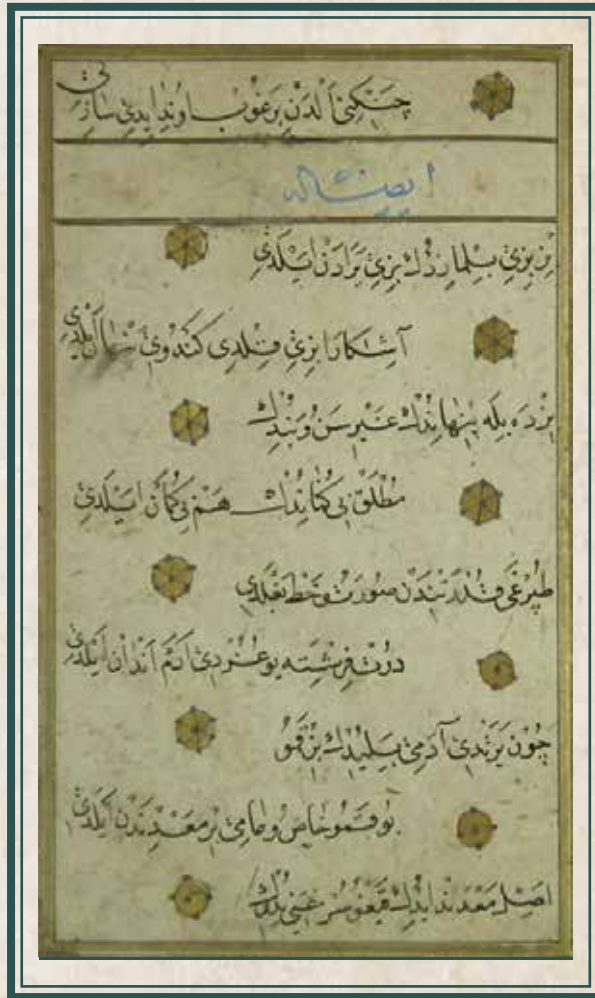 چنكی الدن برغوب اوندایدی
بز بزی بیلمازدك بزی یرادن ایلدی
آشكارا بزی قلدی كندوی پنهان ایلدی
بزده بله پنهاندك غیر سن و بندك
مطلق بی كماندك هم بی كمان ایلدی
طپرغی قدرتندن صورت و خط بغلدی
درت فرشته یوغردی ادم اندان ایلدی
چون یرتدی آدمی بیلیدك بز قمو
بو قمو خاص و عامی بر معدندن ایلدی
اصل معدندایدك قیغوسز